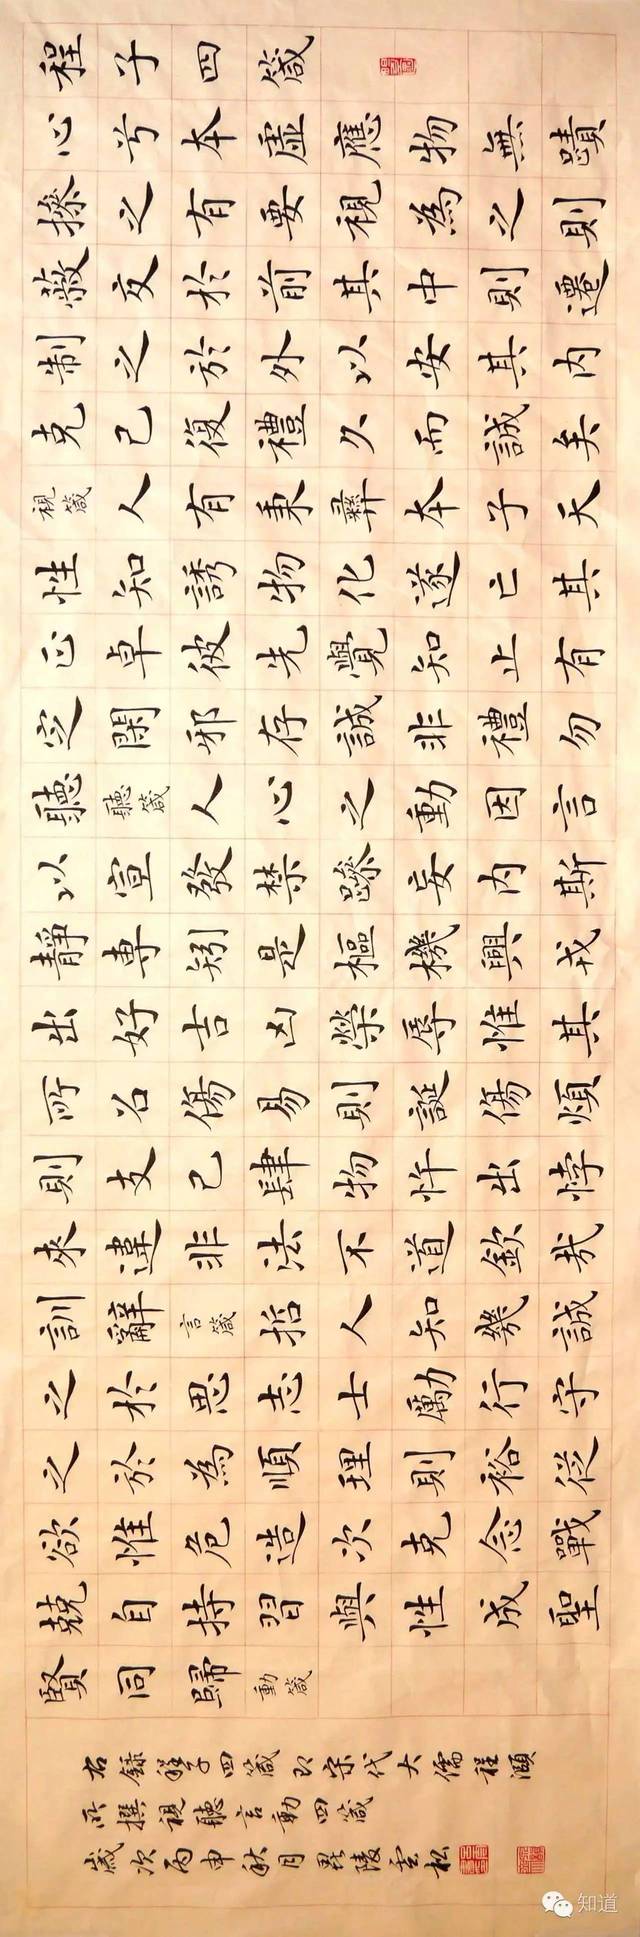 程子四箴
心兮本虛應物無蹟
操之有要視為之則
蔽交於前其中則遷
制之於外以安其內
克己復禮久而誠矣
視箴 人有秉彝本乎天
性知誘物化遂亡其
正卓彼先覺知止有
定閑邪存誠非禮勿
聽 聽箴 人心之動因言
以宣發禁躁妄內斯
靜專矧是樞機興戎
出好吉凶榮辱惟其
所召傷易則誕傷煩
則支己肆物忤出悖
來違非法不道欽哉
訓辭 言箴 哲人知幾誠
之於思志士勵行守
之於為順理則裕從
欲惟危造次克念戰
兢自持習與性成聖
賢同歸 動箴
右錄程子四箴即宋代大儒程灝
所撰視聽言動四箴
歲次丙申秋月毘陵雲松
知道